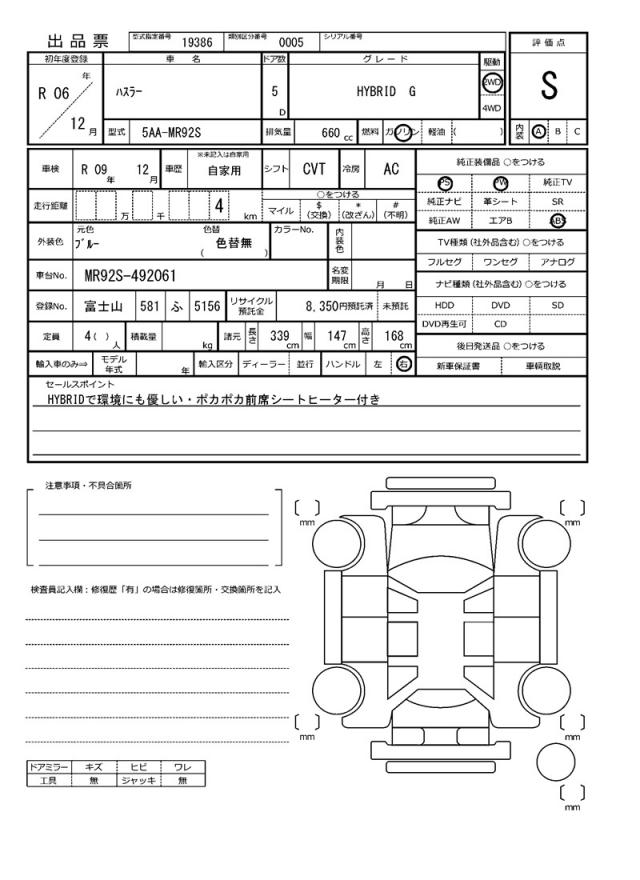 出品票 型式指定番号 19386 類別区分番号 0005 シリアル番号
評価点
S
初年度登録 車名 ドア数 グレード 駆動
R 06 年 ハスラー 5 D HYBRID G 2WD
4WD
12 月 型式 5AA-MR92S 排気量 660 cc 燃料 ガソリン 軽油 ( )
内装 A B C
車検 R 09 年 12 月 車歴 ※未記入は自家用 自家用 シフト CVT 冷房 AC
純正装備品 ○をつける
PS PW 純正TV
純正ナビ 革シート SR
純正AW エアB ABS
走行距離 万 千 4 km ○をつける
マイル $(交換) *(改ざん) #(不明)
外装色 元色 ブルー 色替 ( 色替無 ) カラーNo. 内装色
TV種類 (社外品含む) ○をつける
フルセグ ワンセグ アナログ
車台No. MR92S-492061 名変期限 月 日
ナビ種類 (社外品含む) ○をつける
HDD DVD SD
DVD再生可 CD
登録No. 富士山 581 ふ 5156 リサイクル預託金 8,350円預託済 未預託
定員 4 ( ) 人 積載量 kg 諸元 長さ 339 cm 幅 147 cm 高さ 168 cm
後日発送品 ○をつける
新車保証書 車輌取説
輸入車のみ⇒ モデル年式 年 輸入区分 ディーラー 並行 ハンドル 左 右
セールスポイント
HYBRIDで環境にも優しい・ポカポカ前席シートヒーター付き
注意事項・不具合箇所
検査員記入欄：修復歴「有」の場合は修復箇所・交換箇所を記入
mm
mm
mm
mm
mm
ドアミラー キズ ヒビ ワレ
工具 無 ジャッキ 無